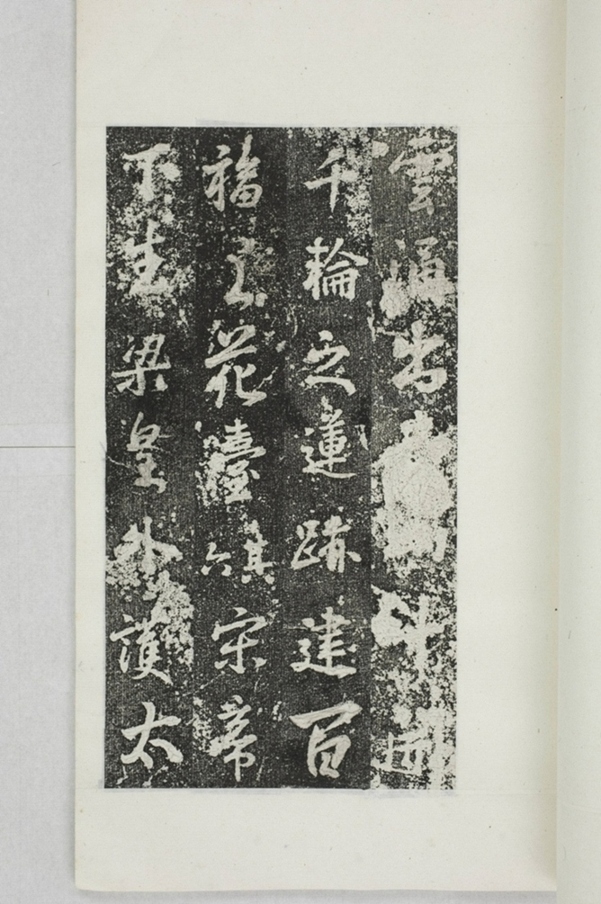 雲出
千輪之蓮跡建百
福之花臺宋帝
下生梁皇外護太